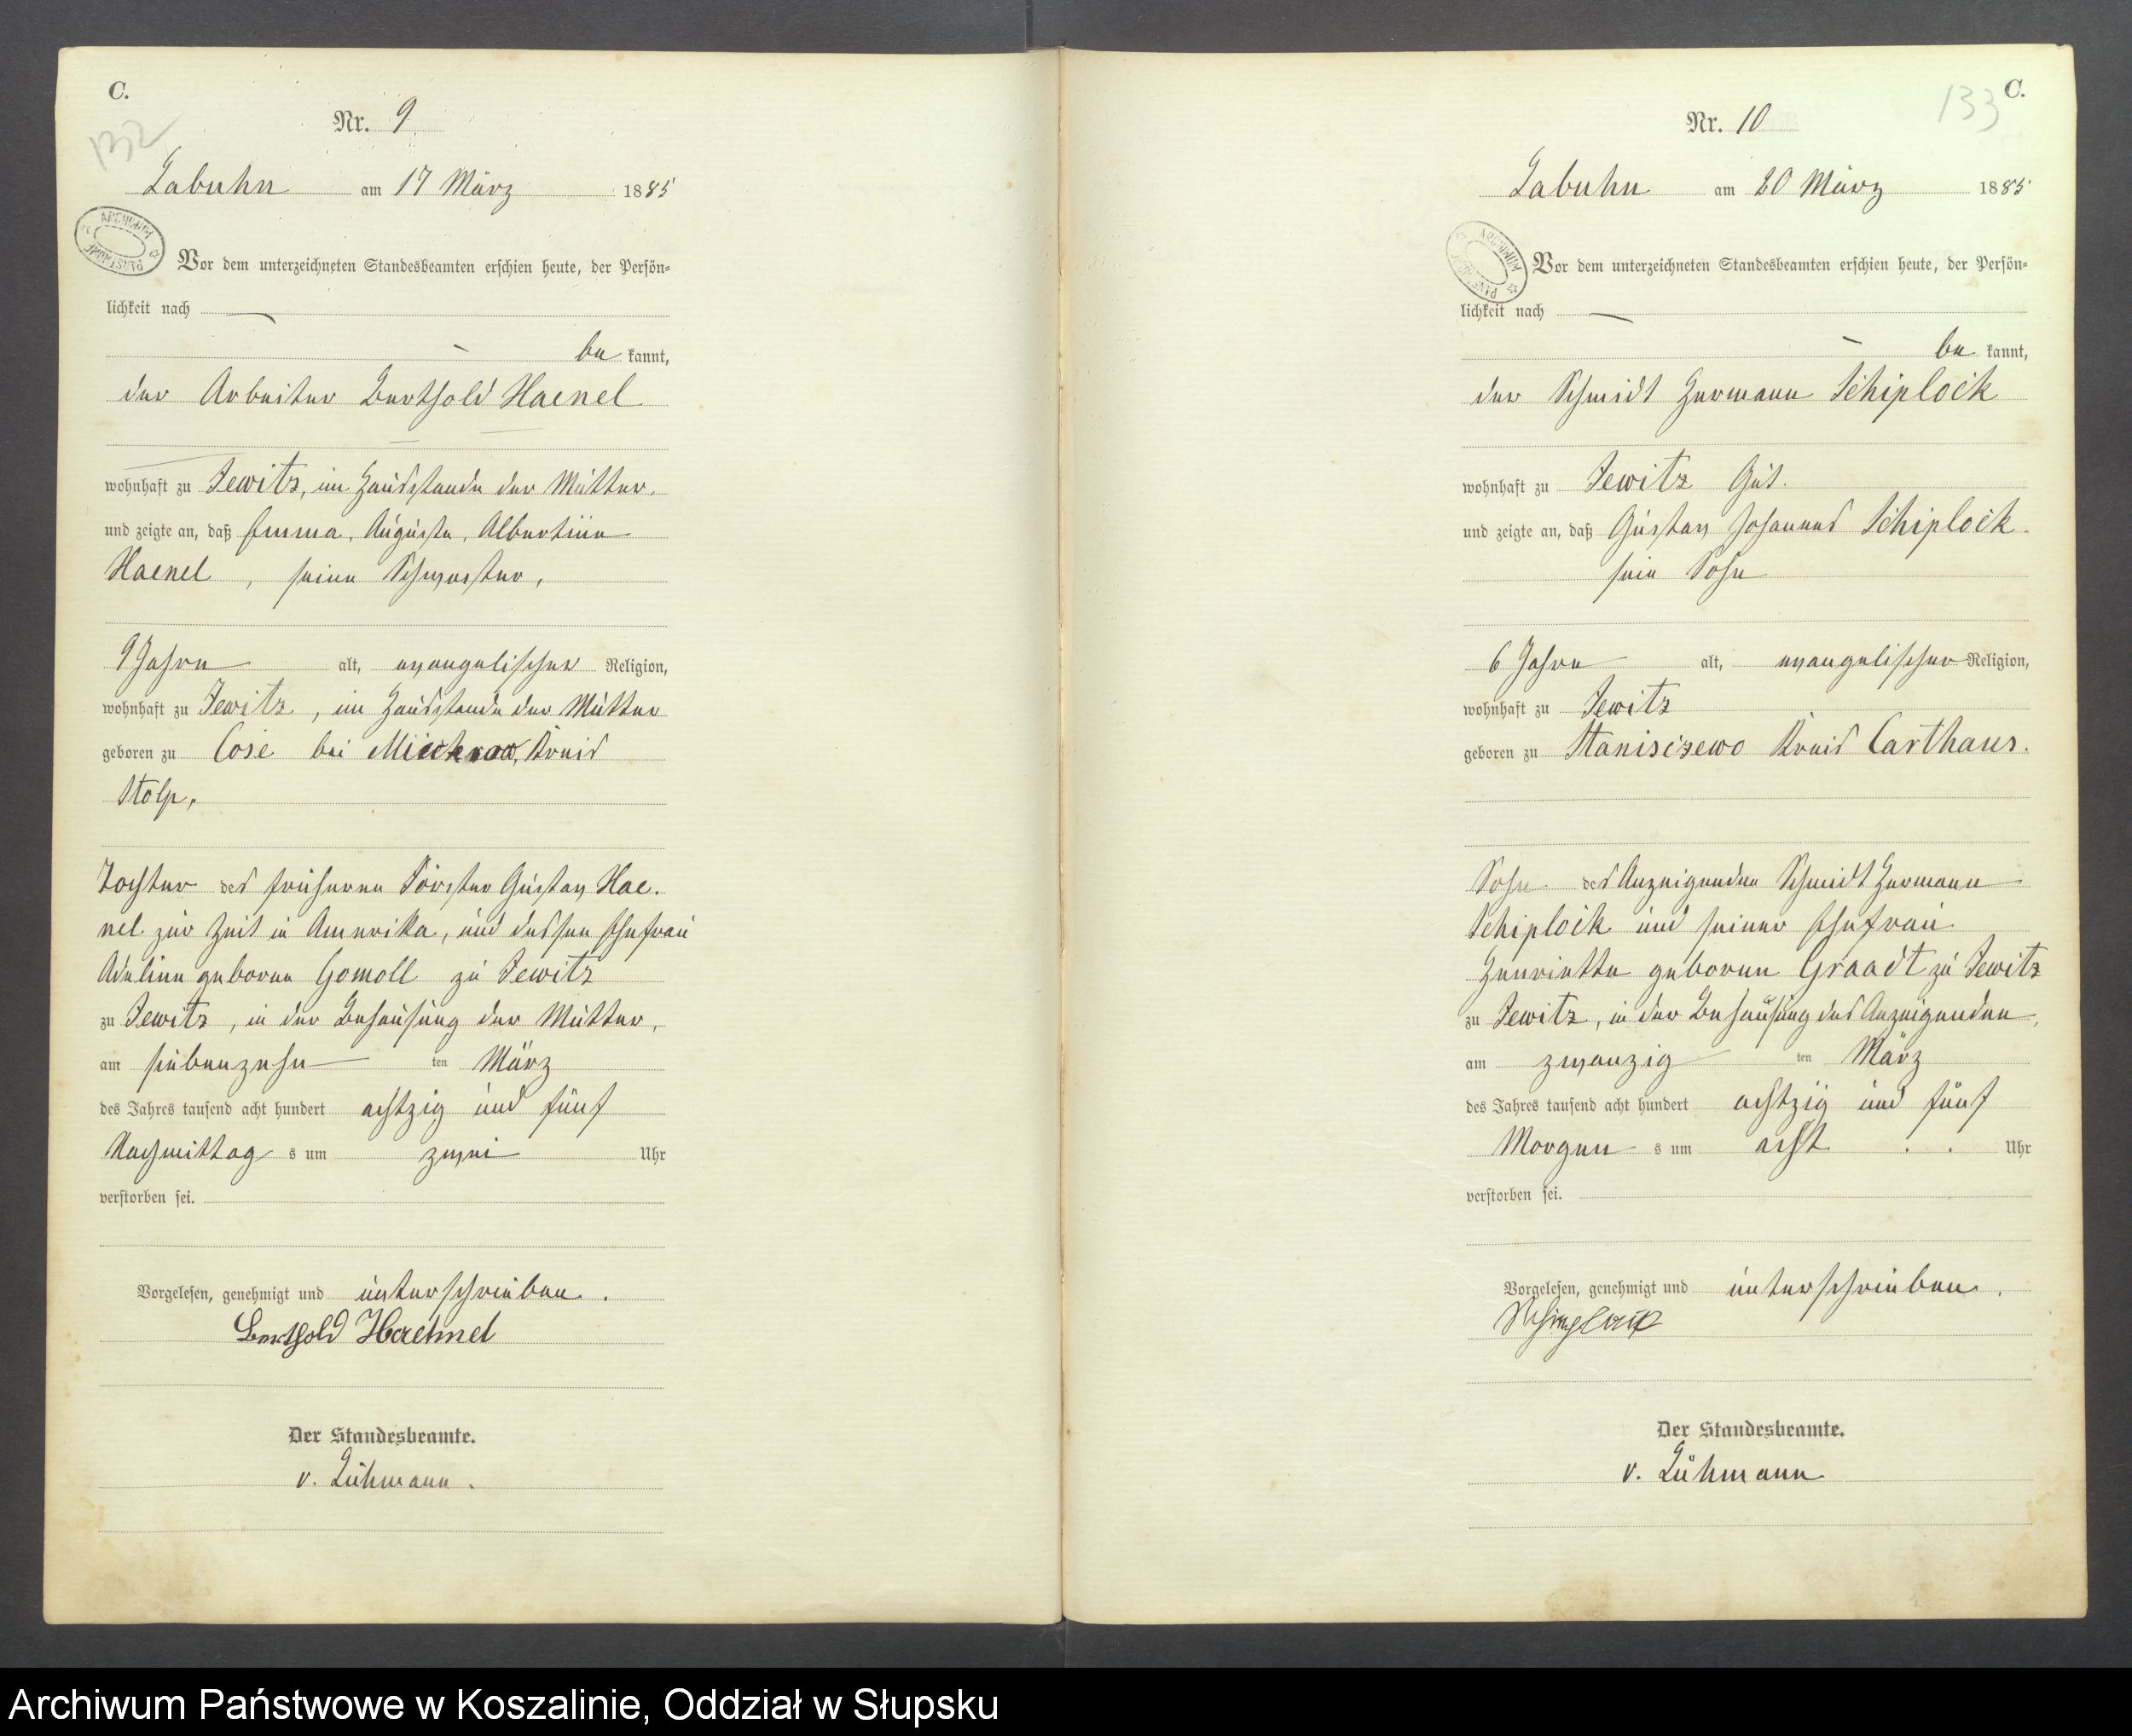 C.
132
Nr. 9
Labuhn am 17 März 1885
Vor dem unterzeichneten Standesbeamten erschien heute, der Persön-
lichkeit nach
be kannt,
der Arbeiter Berthold Haenel
wohnhaft zu Jewitz, im Hausstande der Mutter.
und zeigte an, daß Emma, Auguste, Albertine
Haenel, seine Schwester,
9 Jahre alt, evangelischer Religion,
wohnhaft zu Jewitz, im Hausstande der Mutter
geboren zu Cose bei Kreis
Stolp,
Tochter des früheren Förster Gustav Hae-
nel zur Zeit in Amerika, und dessen Ehefrau
Adeline geborne Gomoll zu Jewitz
zu Jewitz, in der Behausung der Mutter,
am siebenzehn ten März
des Jahres tausend acht hundert achtzig und fünf
Nachmittag s um zwei Uhr
verstorben sei.
Vorgelesen, genehmigt und unterschrieben.
Berthold Haehnel
Der Standesbeamte.
v. Lühmann.
ARCHIWUM PAŃSTWOWE
C.
133
Nr. 10
Labuhn am 20 März 1885
Vor dem unterzeichneten Standesbeamten erschien heute, der Persön-
lichkeit nach
be kannt,
der Schmidt Hermann Schiplock
wohnhaft zu Jewitz Gut.
und zeigte an, daß Gustav Johannes Schiplock.
sein Sohn
6 Jahre alt, evangelischer Religion,
wohnhaft zu Jewitz
geboren zu Stanisczewo Kreis Carthaus.
Sohn des Anzeigenden Schmidt Hermann
Schiplock und seiner Ehefrau
Henriette geboren Graadt zu Jewitz
zu Jewitz, in der Behausung des Anzeigenden,
am zwanzig ten März
des Jahres tausend acht hundert achtzig und fünf
Morgen s um acht Uhr
verstorben sei.
Vorgelesen, genehmigt und unterschrieben.
Der Standesbeamte.
v. Lühmann
ARCHIWUM PAŃSTWOWE
Archiwum Państwowe w Koszalinie, Oddział w Słupsku